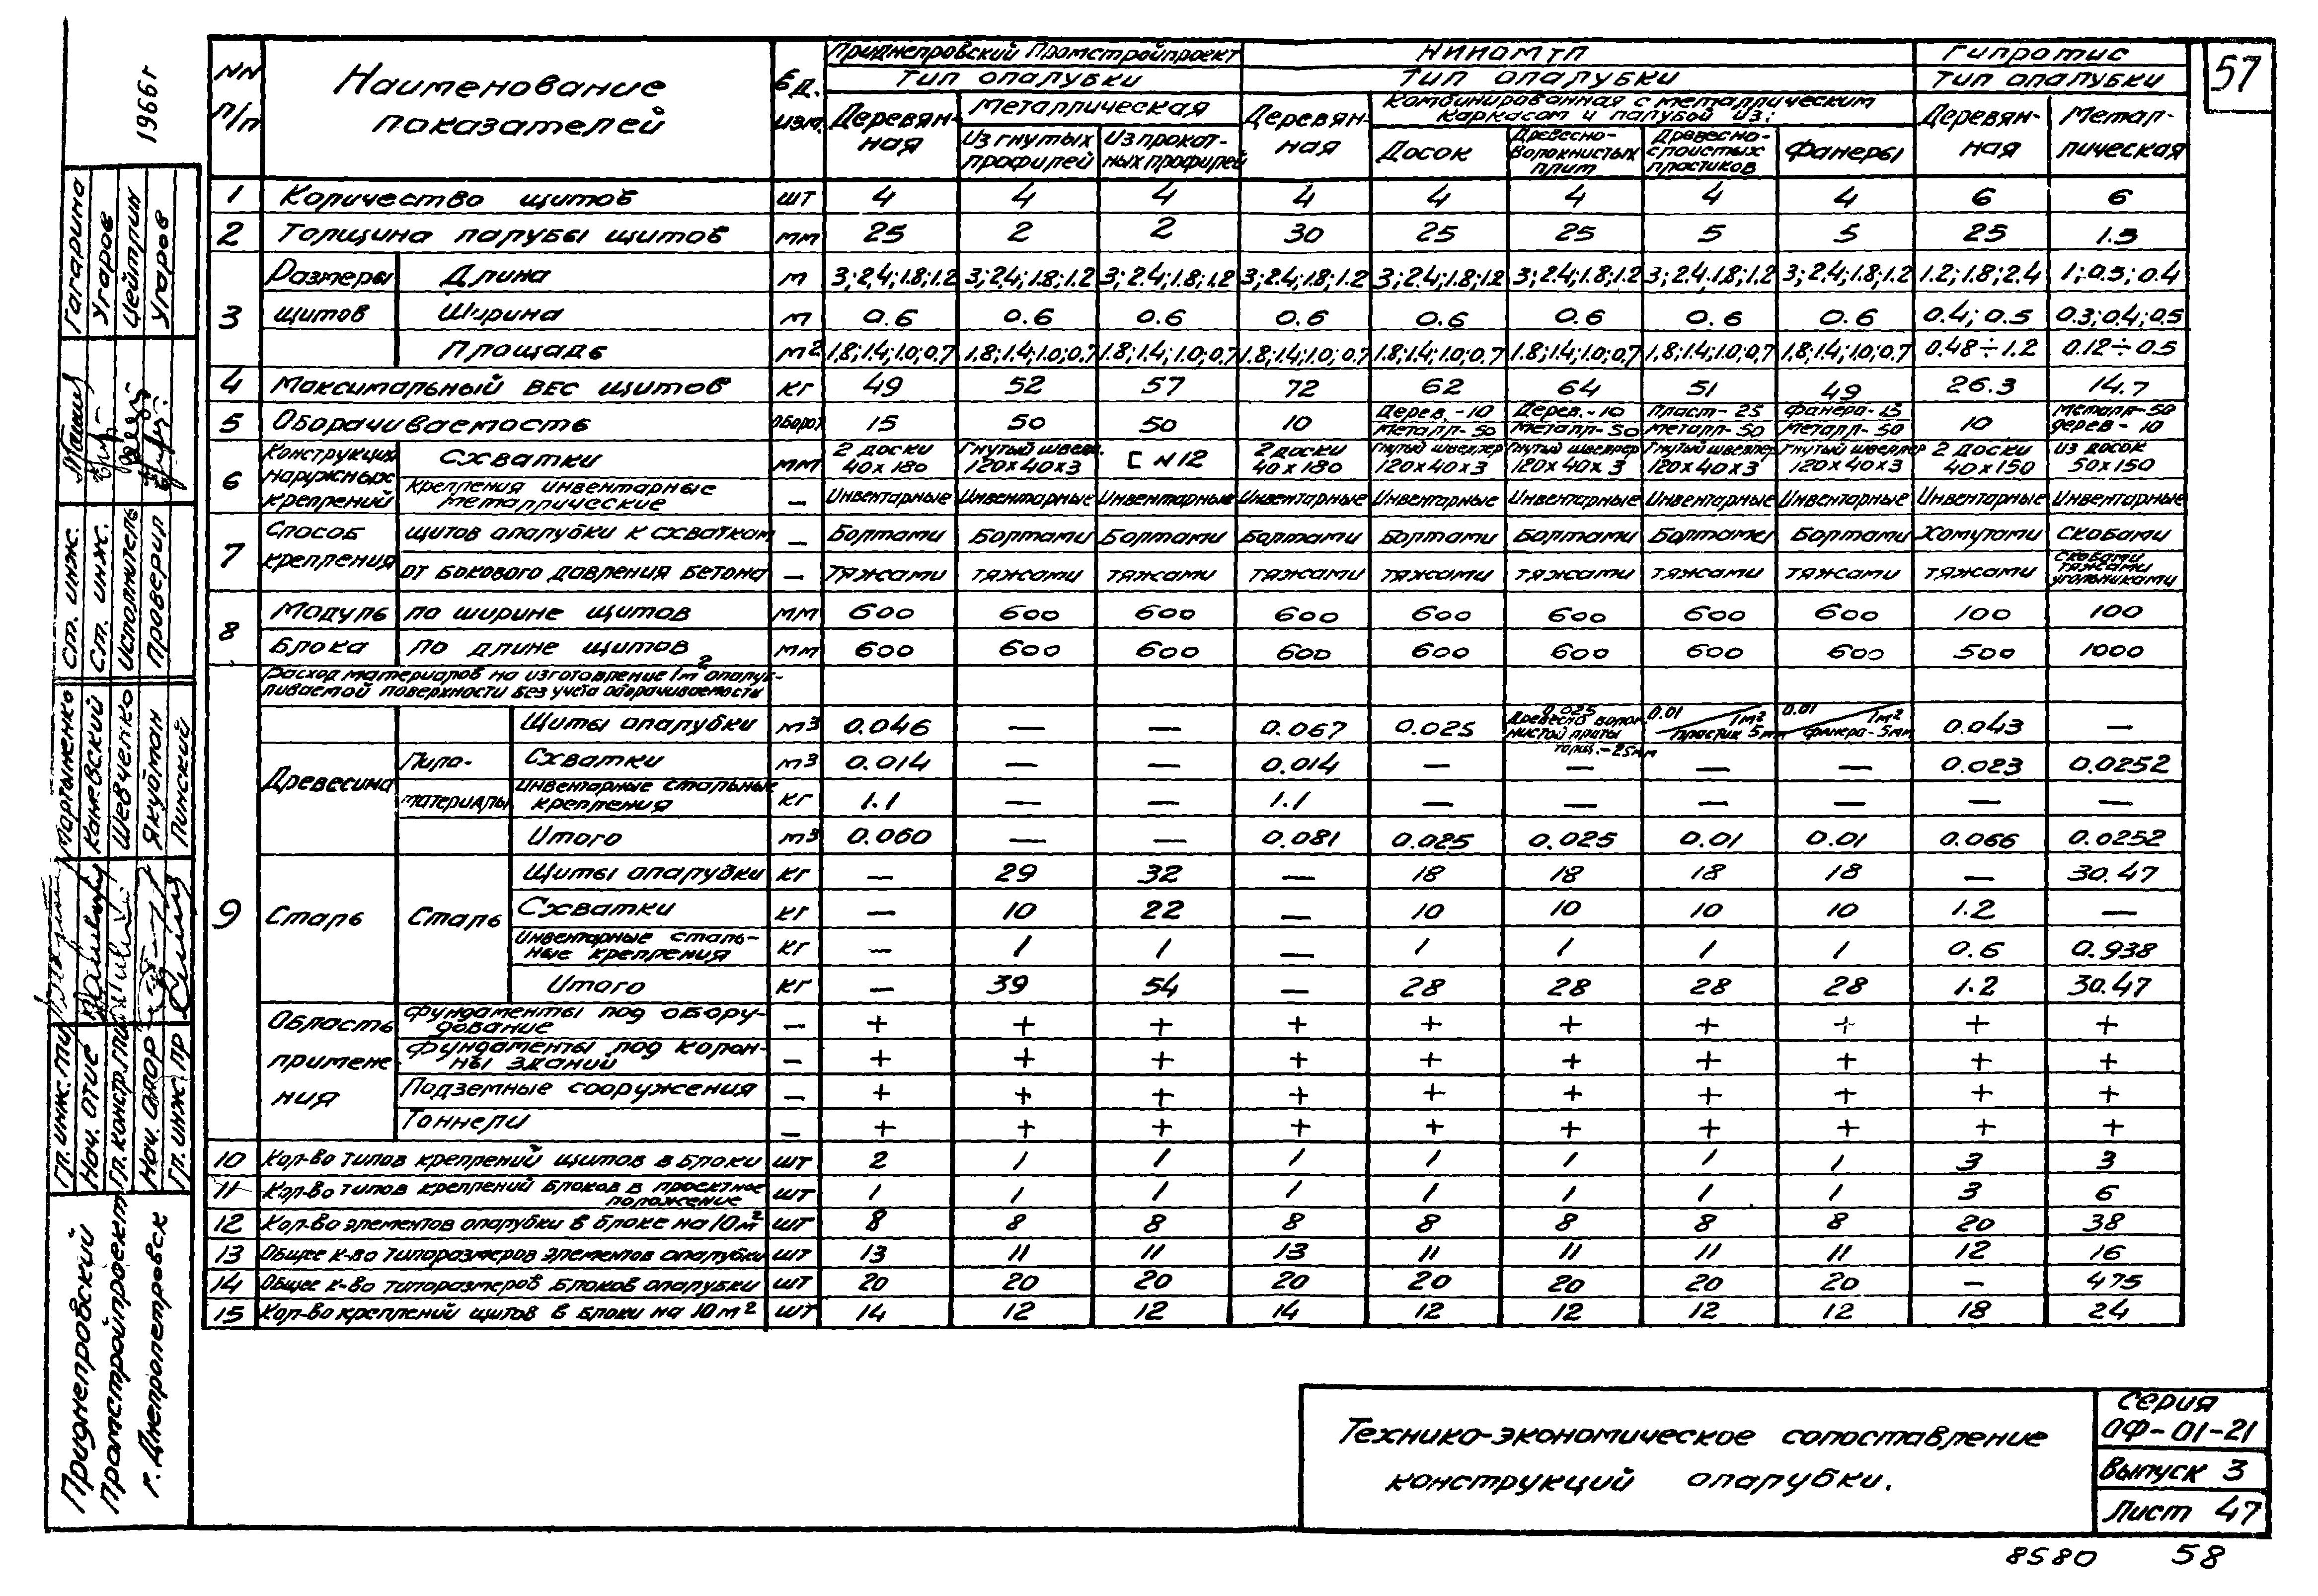 57
NN п/п Наименование показателей Ед. изм. Приднепровский Промстройпроект НИИОМТП Гипротис
Тип опалубки Тип опалубки Тип опалубки
Деревянная Металлическая Деревянная Комбинированная с металлическим каркасом и палубой из: Деревянная Металлическая
Из гнутых профилей Из прокатных профилей Досок Древесно-волокнистых плит Древесно-слоистых пластиков Фанеры
1 Количество щитов шт 4 4 4 4 4 4 4 4 6 6
2 Толщина палубы щитов мм 25 2 2 30 25 25 5 5 25 1.5
3 Размеры щитов Длина м 3;2.4;1.8;1.2 3;2.4;1.8;1.2 3;2.4;1.8;1.2 3;2.4;1.8;1.2 3;2.4;1.8;1.2 3;2.4;1.8;1.2 3;2.4;1.8;1.2 3;2.4;1.8;1.2 1.2;1.8;2.4 1;0.5;0.4
Ширина м 0.6 0.6 0.6 0.6 0.6 0.6 0.6 0.6 0.4; 0.5 0.3;0.4;0.5
Площадь м2 1.8;1.4;1.0;0.7 1.8;1.4;1.0;0.7 1.8;1.4;1.0;0.7 1.8;1.4;1.0;0.7 1.8;1.4;1.0;0.7 1.8;1.4;1.0;0.7 1.8;1.4;1.0;0.7 1.8;1.4;1.0;0.7 0.48÷1.2 0.12÷0.5
4 Максимальный вес щитов кг 49 52 57 72 62 64 51 49 26.3 14.7
5 Оборачиваемость оборот 15 50 50 10 Дерев.-10 Металл-50 Дерев.-10 Металл-50 Пласт-25 Металл-50 Фанера-15 Металл-50 10 Металл-50 дерев-10
6 Конструкция наружных креплений Схватки мм 2 доски 40×180 Гнутый швелл. 120×40×3 [ N 12 2 доски 40×180 Гнутый швеллер 120×40×3 Гнутый швеллер 120×40×3 Гнутый швеллер 120×40×3 Гнутый швеллер 120×40×3 2 доски 40×150 Из досок 50×150
Крепления инвентарные металлические — Инвентарные Инвентарные Инвентарные Инвентарные Инвентарные Инвентарные Инвентарные Инвентарные Инвентарные Инвентарные
7 Способ крепления щитов опалубки к схваткам — Болтами Болтами Болтами Болтами Болтами Болтами Болтами Болтами Хомутами Скобами
от бокового давления бетона — Тяжами тяжами тяжами тяжами тяжами тяжами тяжами тяжами тяжами скобами тяжами угольниками
8 Модуль блока по ширине щитов мм 600 600 600 600 600 600 600 600 100 100
по длине щитов мм 600 600 600 600 600 600 600 600 500 1000
9 Расход материалов на изготовление 1м2 опалубливаемой поверхности без учета оборачиваемости
Древесина Пиломатериалы Щиты опалубки м3 0.046 — — 0.067 0.025 0.025 Древесно волокнистой плиты толщ.-25мм 0.01 / 1м2 пластик 5мм 0.01 / 1м2 фанера-5мм 0.043 —
Схватки м3 0.014 — — 0.014 — — — — 0.023 0.0252
Инвентарные стальные крепления кг 1.1 — — 1.1 — — — — — —
Итого м3 0.060 — — 0.081 0.025 0.025 0.01 0.01 0.066 0.0252
Сталь Сталь Щиты опалубки кг — 29 32 — 18 18 18 18 — 30.47
Схватки кг — 10 22 — 10 10 10 10 1.2 —
Инвентарные стальные крепления кг — 1 1 — 1 1 1 1 0.6 0.938
Итого кг — 39 54 — 28 28 28 28 1.2 30.47
Область применения Фундаменты под оборудование — + + + + + + + + + +
Фундаменты под колонны зданий — + + + + + + + + + +
Подземные сооружения — + + + + + + + + + +
Тоннели — + + + + + + + + + +
10 Кол-во типов креплений щитов в блоки шт 2 1 1 1 1 1 1 1 3 3
11 Кол-во типов креплений блоков в проектное положение шт 1 1 1 1 1 1 1 1 3 6
12 Кол-во элементов опалубки в блоке на 10м2 шт 8 8 8 8 8 8 8 8 20 38
13 Общее к-во типоразмеров элементов опалубки шт 13 11 11 13 11 11 11 11 12 16
14 Общее к-во типоразмеров блоков опалубки шт 20 20 20 20 20 20 20 20 — 475
15 Кол-во креплений щитов в блоки на 10м2 шт 14 12 12 14 12 12 12 12 18 24
Технико-экономическое сопоставление
конструкций опалубки.
серия
ОФ-01-21
Выпуск 3
Лист 47
8580 58
1966г
Гл. инж. ПИ Мартыненко Ст. инж. Гагарина
Нач. ОТИС Каневский Ст. инж. Угаров
Гл. констр. Шевченко Исполнитель Цейтлин
Нач. Якубман Проверил Угаров
Гл. инж. пр Пинский
Приднепровский
Промстройпроект
г. Днепропетровск